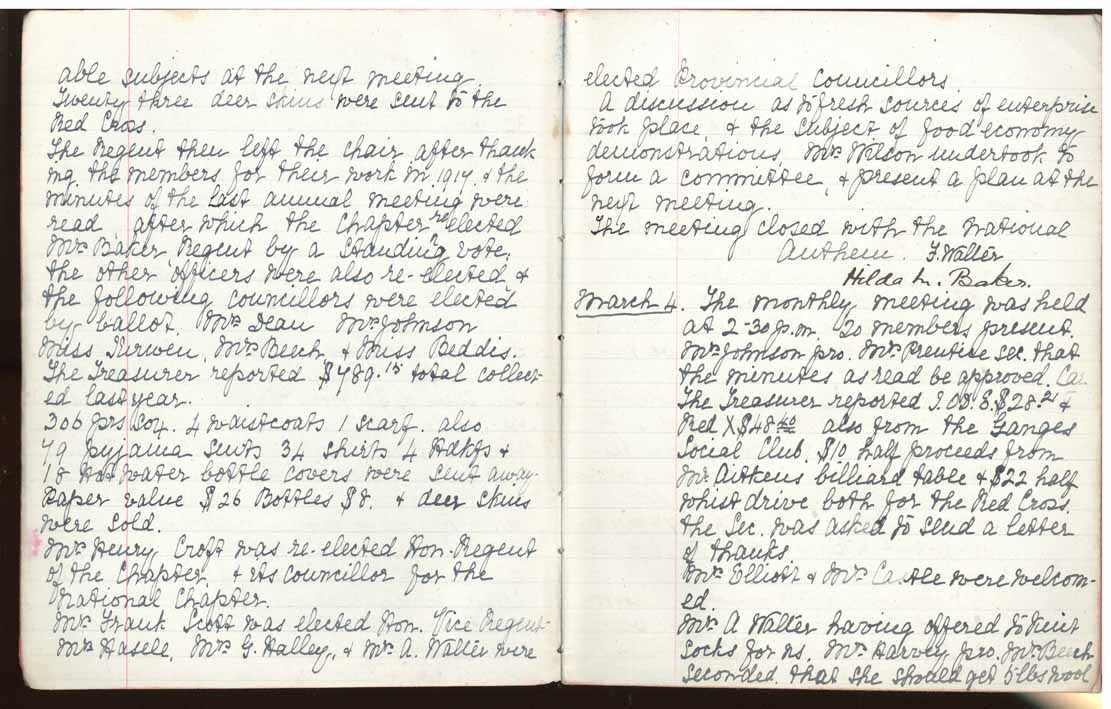 able subjects at the next meeting.
Twenty three deer skins were sent to the
Red Cross.
The Regent then left the chair after thank
ing. the members for their work in 1917. & the
minutes of the last annual meeting were
read after which the Chapter re elected
Mrs Baker Regent by a standing vote.
the other officers were also re-elected &
the following councillors were elected
by ballot. Mrs Dean Mrs Johnson
Miss Turwen, Mrs Beech & Miss Beddis.
The Treasurer reported $789.15 total collect-
ed last year.
306 prs sox. 4 waistcoats 1 scarf. also
79 pyjama suits 34 shirts 4 Hdkfs &
18 Hot water bottle covers were sent away.
Paper value $26 Bottles $8. & deer skins
were sold.
Mrs Henry Croft was re-elected Hon. Regent
of the Chapter, & its councillor for the
National Chapter.
Mrs Frank Scott was elected Hon. Vice Regent.
Mrs Hasell, Mrs G. Halley, & Mrs A. Walter were
elected Provincial Councillors.
A discussion as to fresh sources of enterprise
took place, & the subject of food economy
demonstrations. Mrs Wilson undertook to
form a committee, & present a plan at the
next meeting.
The meeting closed with the National
Anthem. F. Walter
Hilda M. Baker.
March 4. The monthly meeting was held
at 2-30 p.m. 20 members present.
Mrs Johnson pro. Mrs Prentise sec. that
the minutes as read be approved. Car.
The Treasurer reported I.O.D.E. $28.21 &
Red X $48.40 also from the Ganges
Social Club. $10 half proceeds from
Mr Aitkens billiard table & $22 half
whist drive both for the Red Cross.
the Sec. was asked to send a letter
of thanks.
Mrs Elliott & Mrs Castle were welcom-
ed.
Mrs A Walter having offered to knit
socks for us. Mrs Harvey pro. Mrs Beech
seconded. that she should get 5 lbs wool